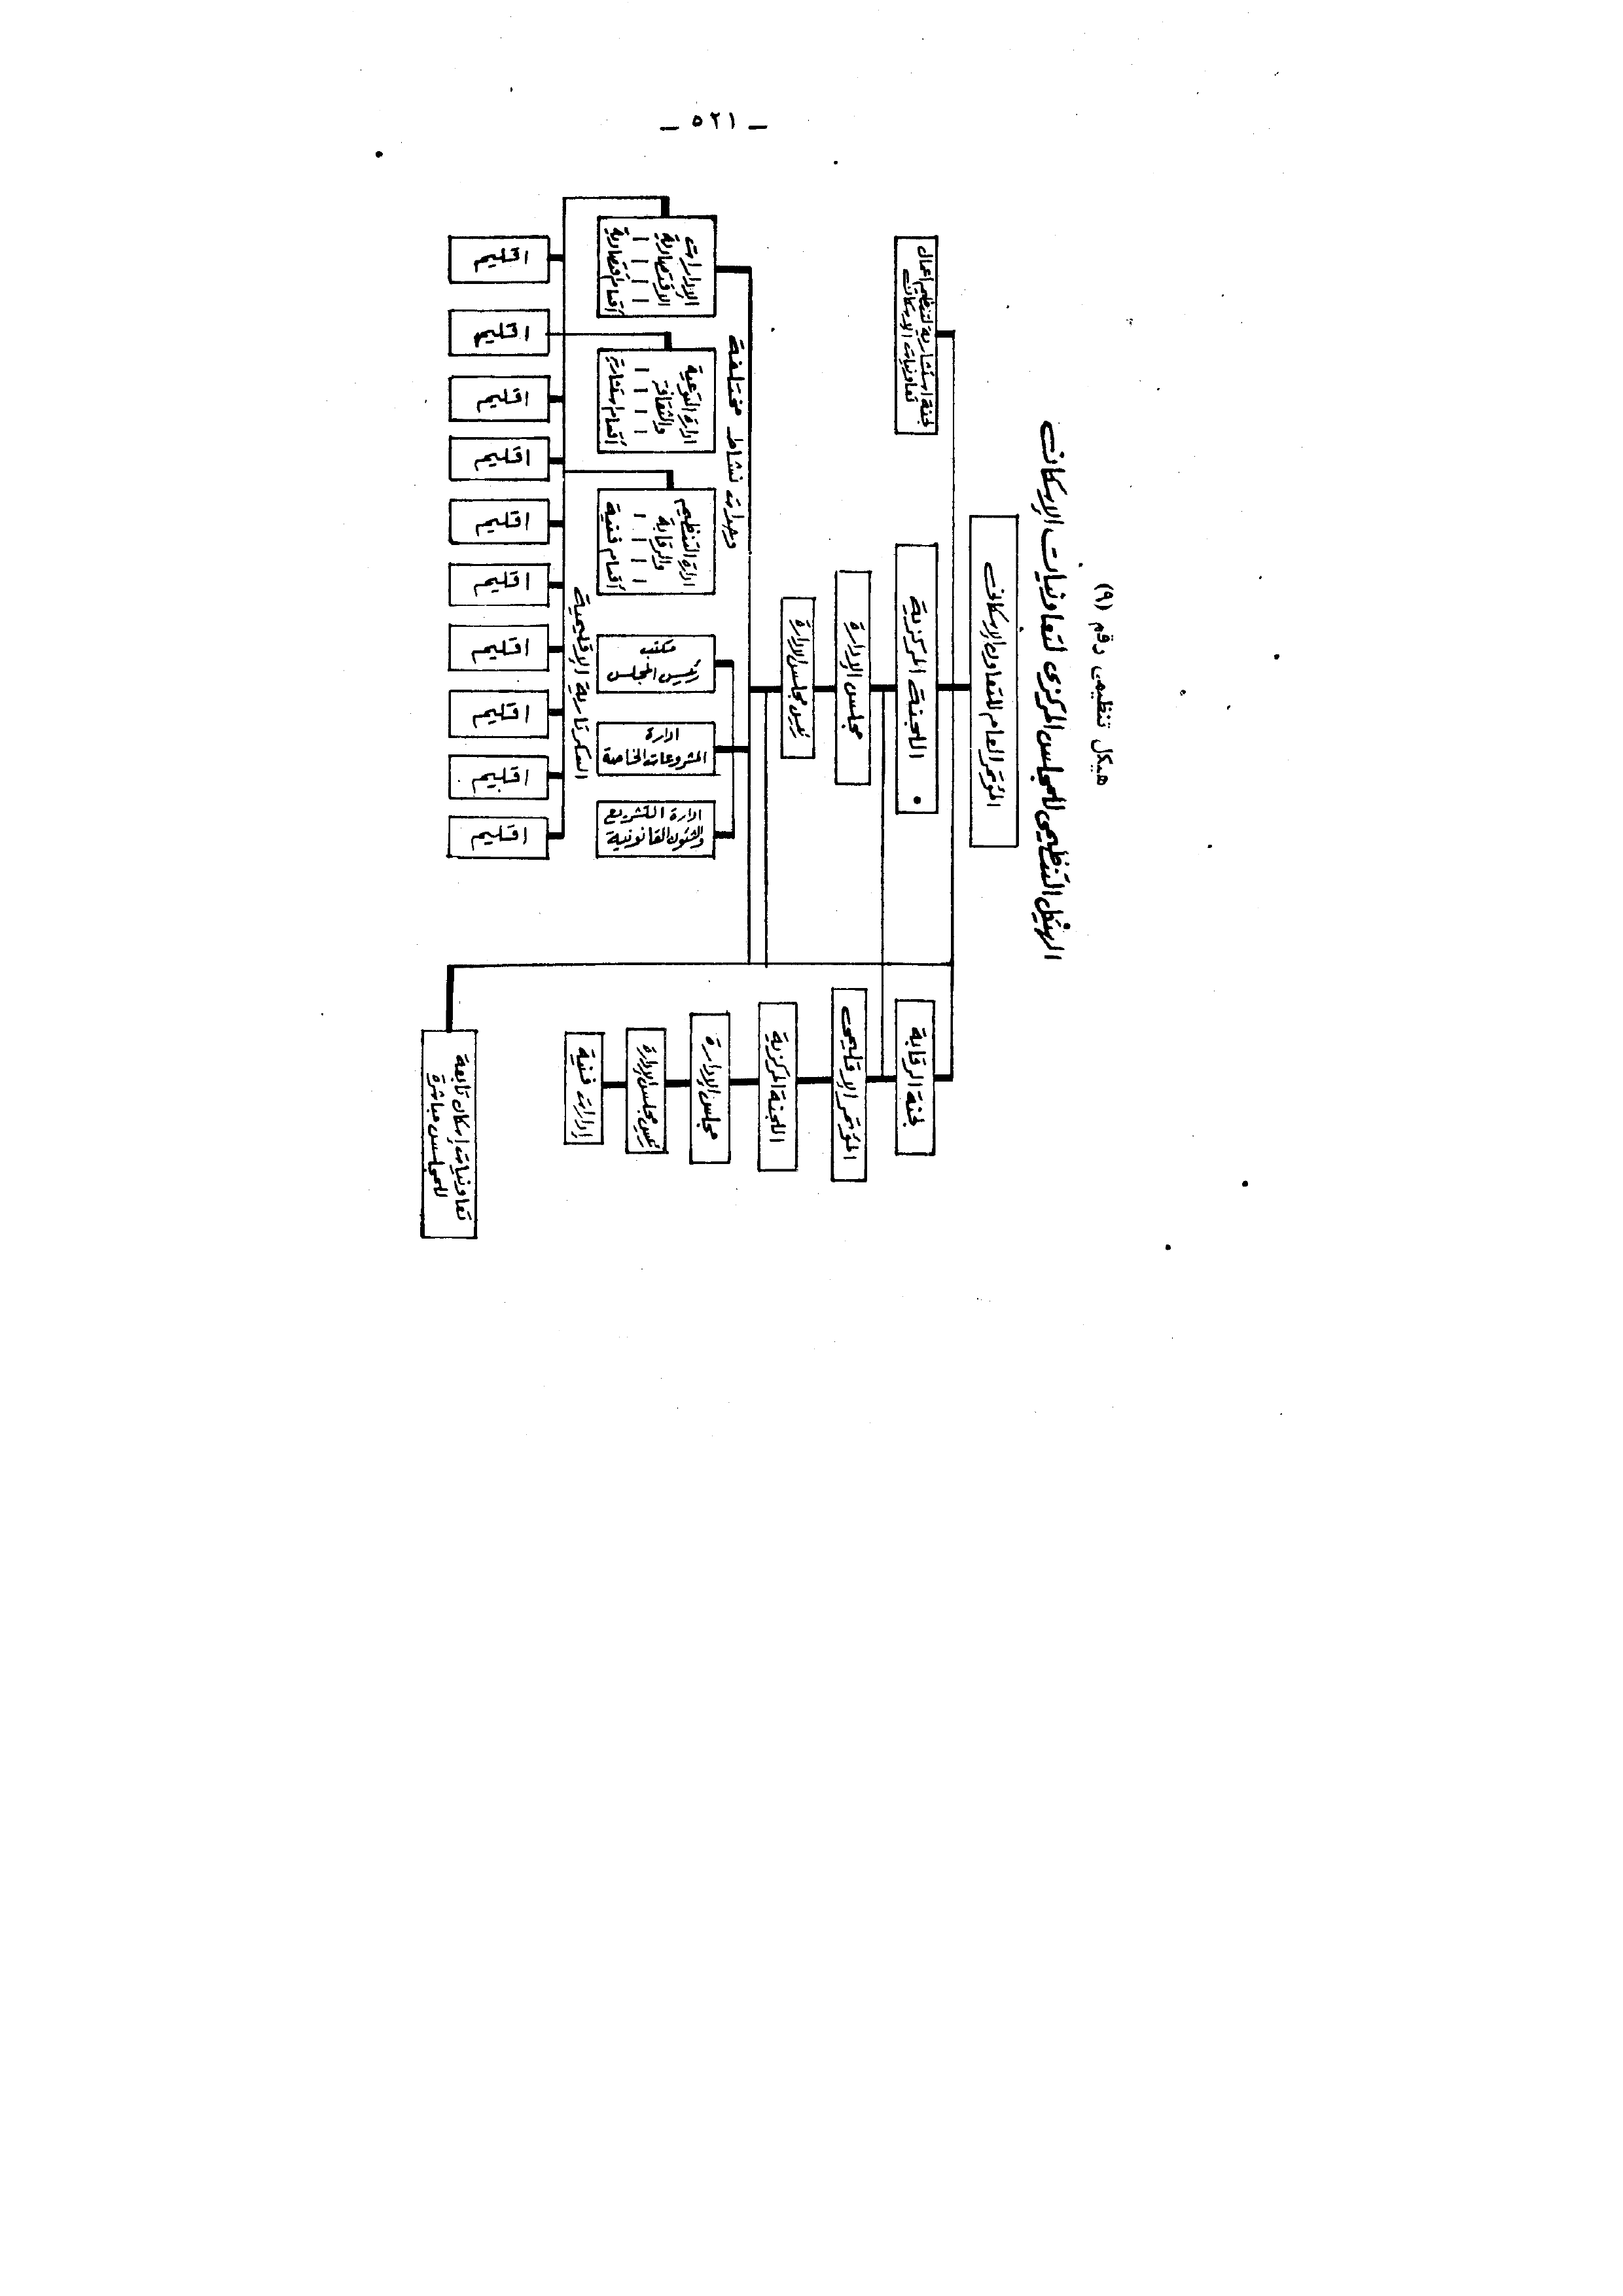 ــ ٥٢١ ــ
هيكل تنظيمى رقم (٩)
الهيكل التنظيمى للمجلس المركزى لتعاونيات الإسكان
المؤتمر العام للتعاون الإسكانى
لجنة استشارية لتنظيم اعمال
تعاونيات الاسكان
اللجنة المركزية
لجنة الرقابة
مجلس الإدارة
المؤتمر الاقليمى
رئيس مجلس الادارة
اللجنة المركزية
مجلس الإدارة
رئيس مجلس الإدارة
إدارات فنية
وحدات نشاط مختلفة
الإدارات
الاقتصادية
أقسام اقتصادية
ادارة التوعية
والثقافة
أقسام استشارية
ادارة التنظيم
والرقابة
أقسام فنية
مكتب
رئيس المجلس
ادارة
المشروعات الخاصة
ادارة التشريع
والشئون القانونية
السكرتارية الإقليمية
اقليم
اقليم
اقليم
اقليم
اقليم
اقليم
اقليم
اقليم
اقليم
اقليم
تعاونيات إسكان تابعة
للمجلس مباشرة